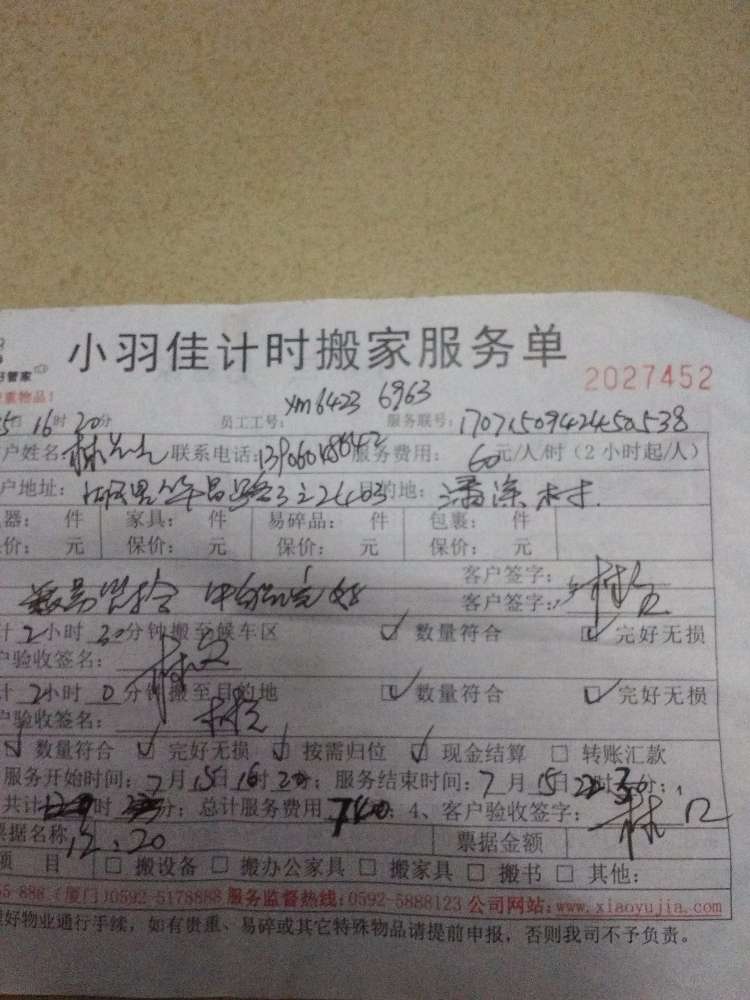 好管家
小羽佳计时搬家服务单
2027452
重物品！
5日16时20分 员工工号：xm6423 6963 服务联号：
户姓名 林先生 联系电话： 服务费用： 60元/人/时（2小时起/人）
户地址： 目的地：潘涂村.
器： 件 家具： 件 易碎品： 件 包裹： 件
保价： 元 保价： 元 保价： 元 保价： 元
客户签字：
客户签字：
计2小时20分钟搬至候车区 数量符合 完好无损
户验收签名：
计2小时0分钟搬至目的地 数量符合 完好无损
户验收签名：
数量符合 完好无损 按需归位 现金结算 转账汇款
服务开始时间：7月15日16时20分；服务结束时间：7月15日22时30分；
共计 时 分；总计服务费用740；4、客户验收签字：
票据名称 12.20 票据金额
项 目 搬设备 搬办公家具 搬家具 搬书 其他：
55 888（厦门）0592-5178888 服务监督热线：0592-5888123 公司网站：www.xiaoyujia.com
理好物业通行手续，如有贵重、易碎或其它特殊物品请提前申报，否则我司不予负责。